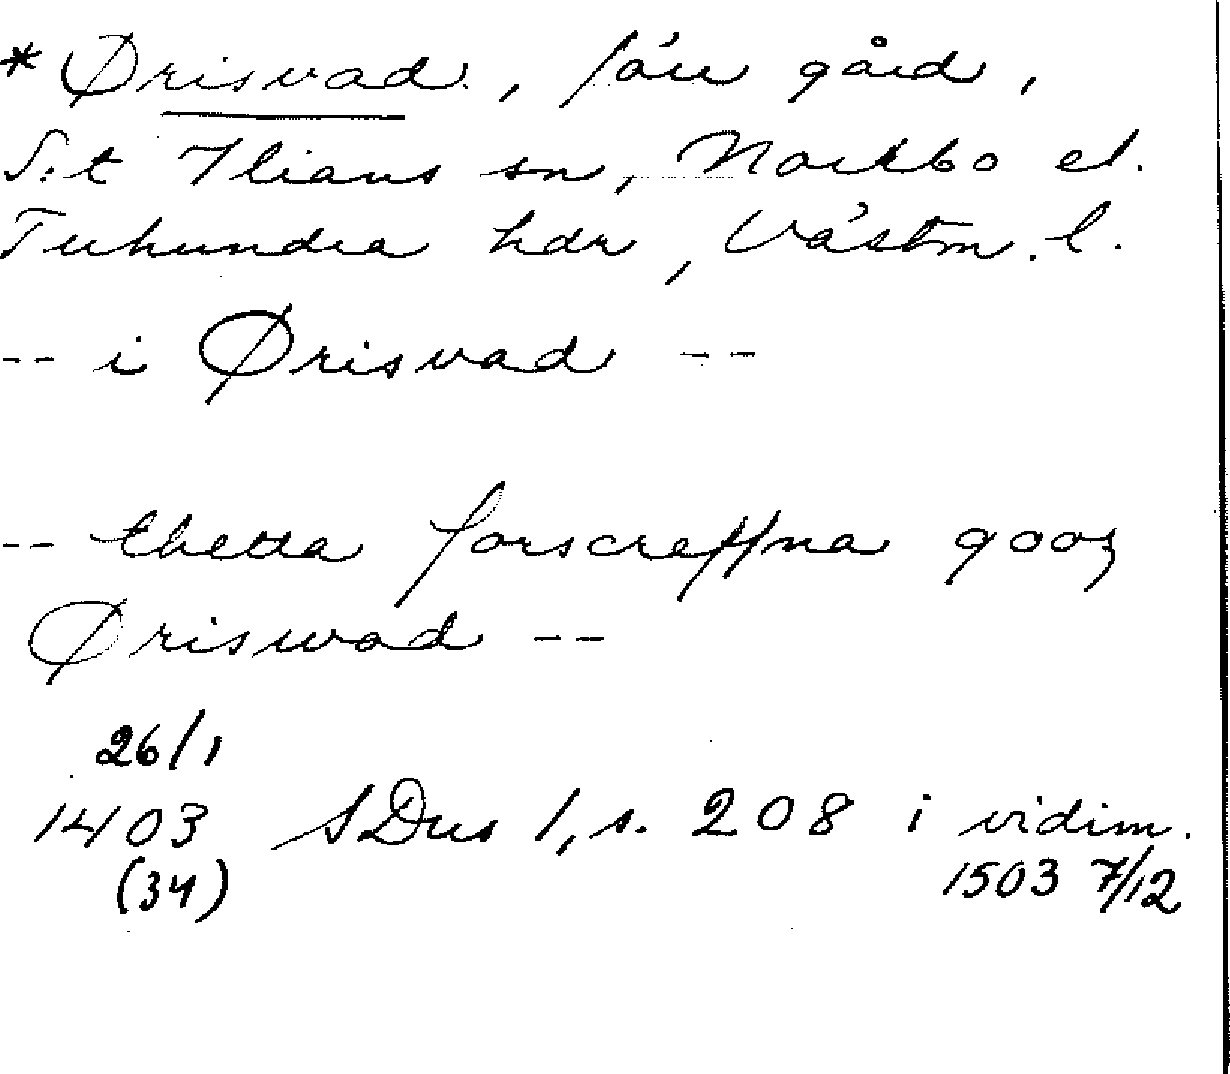 * Ørisvad, förr gård,
S:t Ilians sn, Norrbo el.
Tuhundra hdr, Västm. l.
-- i Ørisvad --
-- thetta forscreffna gooz
Øriswad --
26/1
1403 SDns 1, s. 208 i vidim.
(34) 1503 7/12